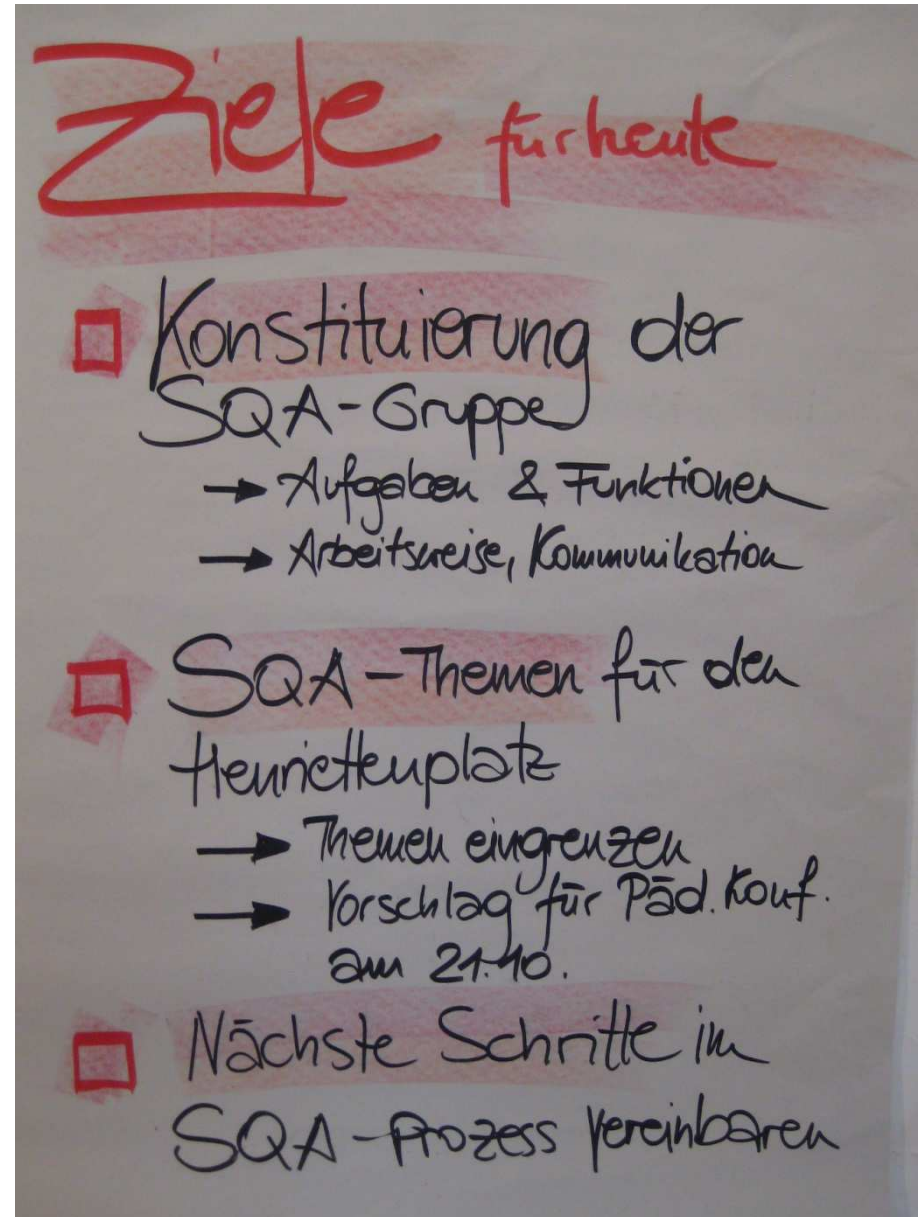 Ziele für heute
Konstituierung der
SQA-Gruppe
→ Aufgaben & Funktionen
→ Arbeitsweise, Kommunikation
SQA-Themen für den
Henriettenplatz
→ Themen eingrenzen
→ Vorschlag für Päd. Konf.
am 21.10.
Nächste Schritte im
SQA-Prozess vereinbaren